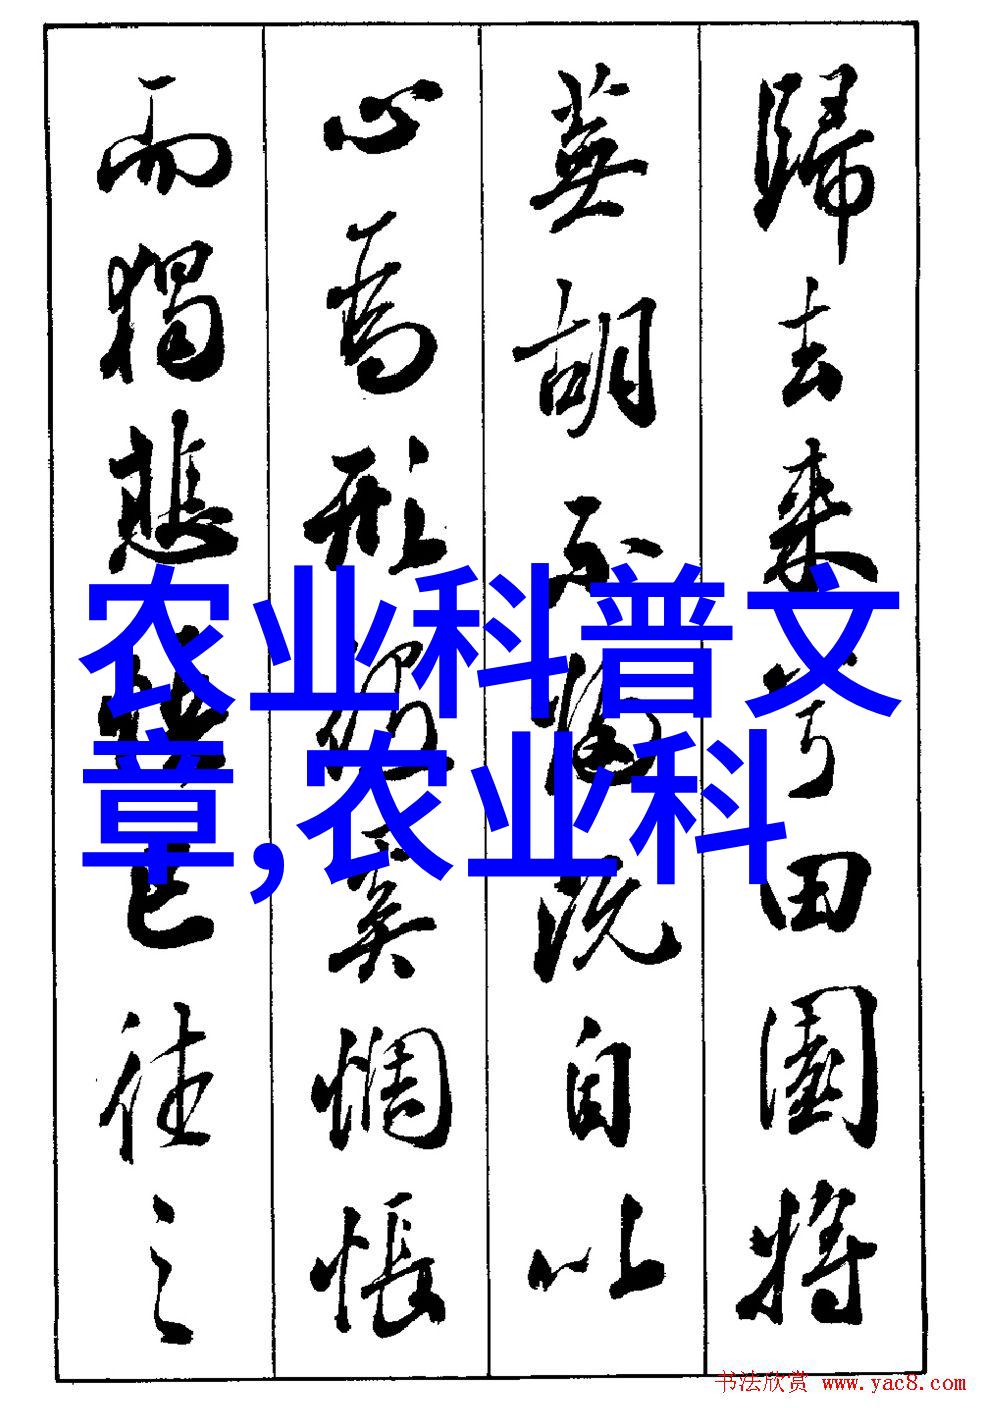 歸去来兮田園將
蕪胡不歸既自以
心為形役奚惆悵
而獨悲悟已往之
农业科普文
章,农业科
书法欣赏 www.yac8.com